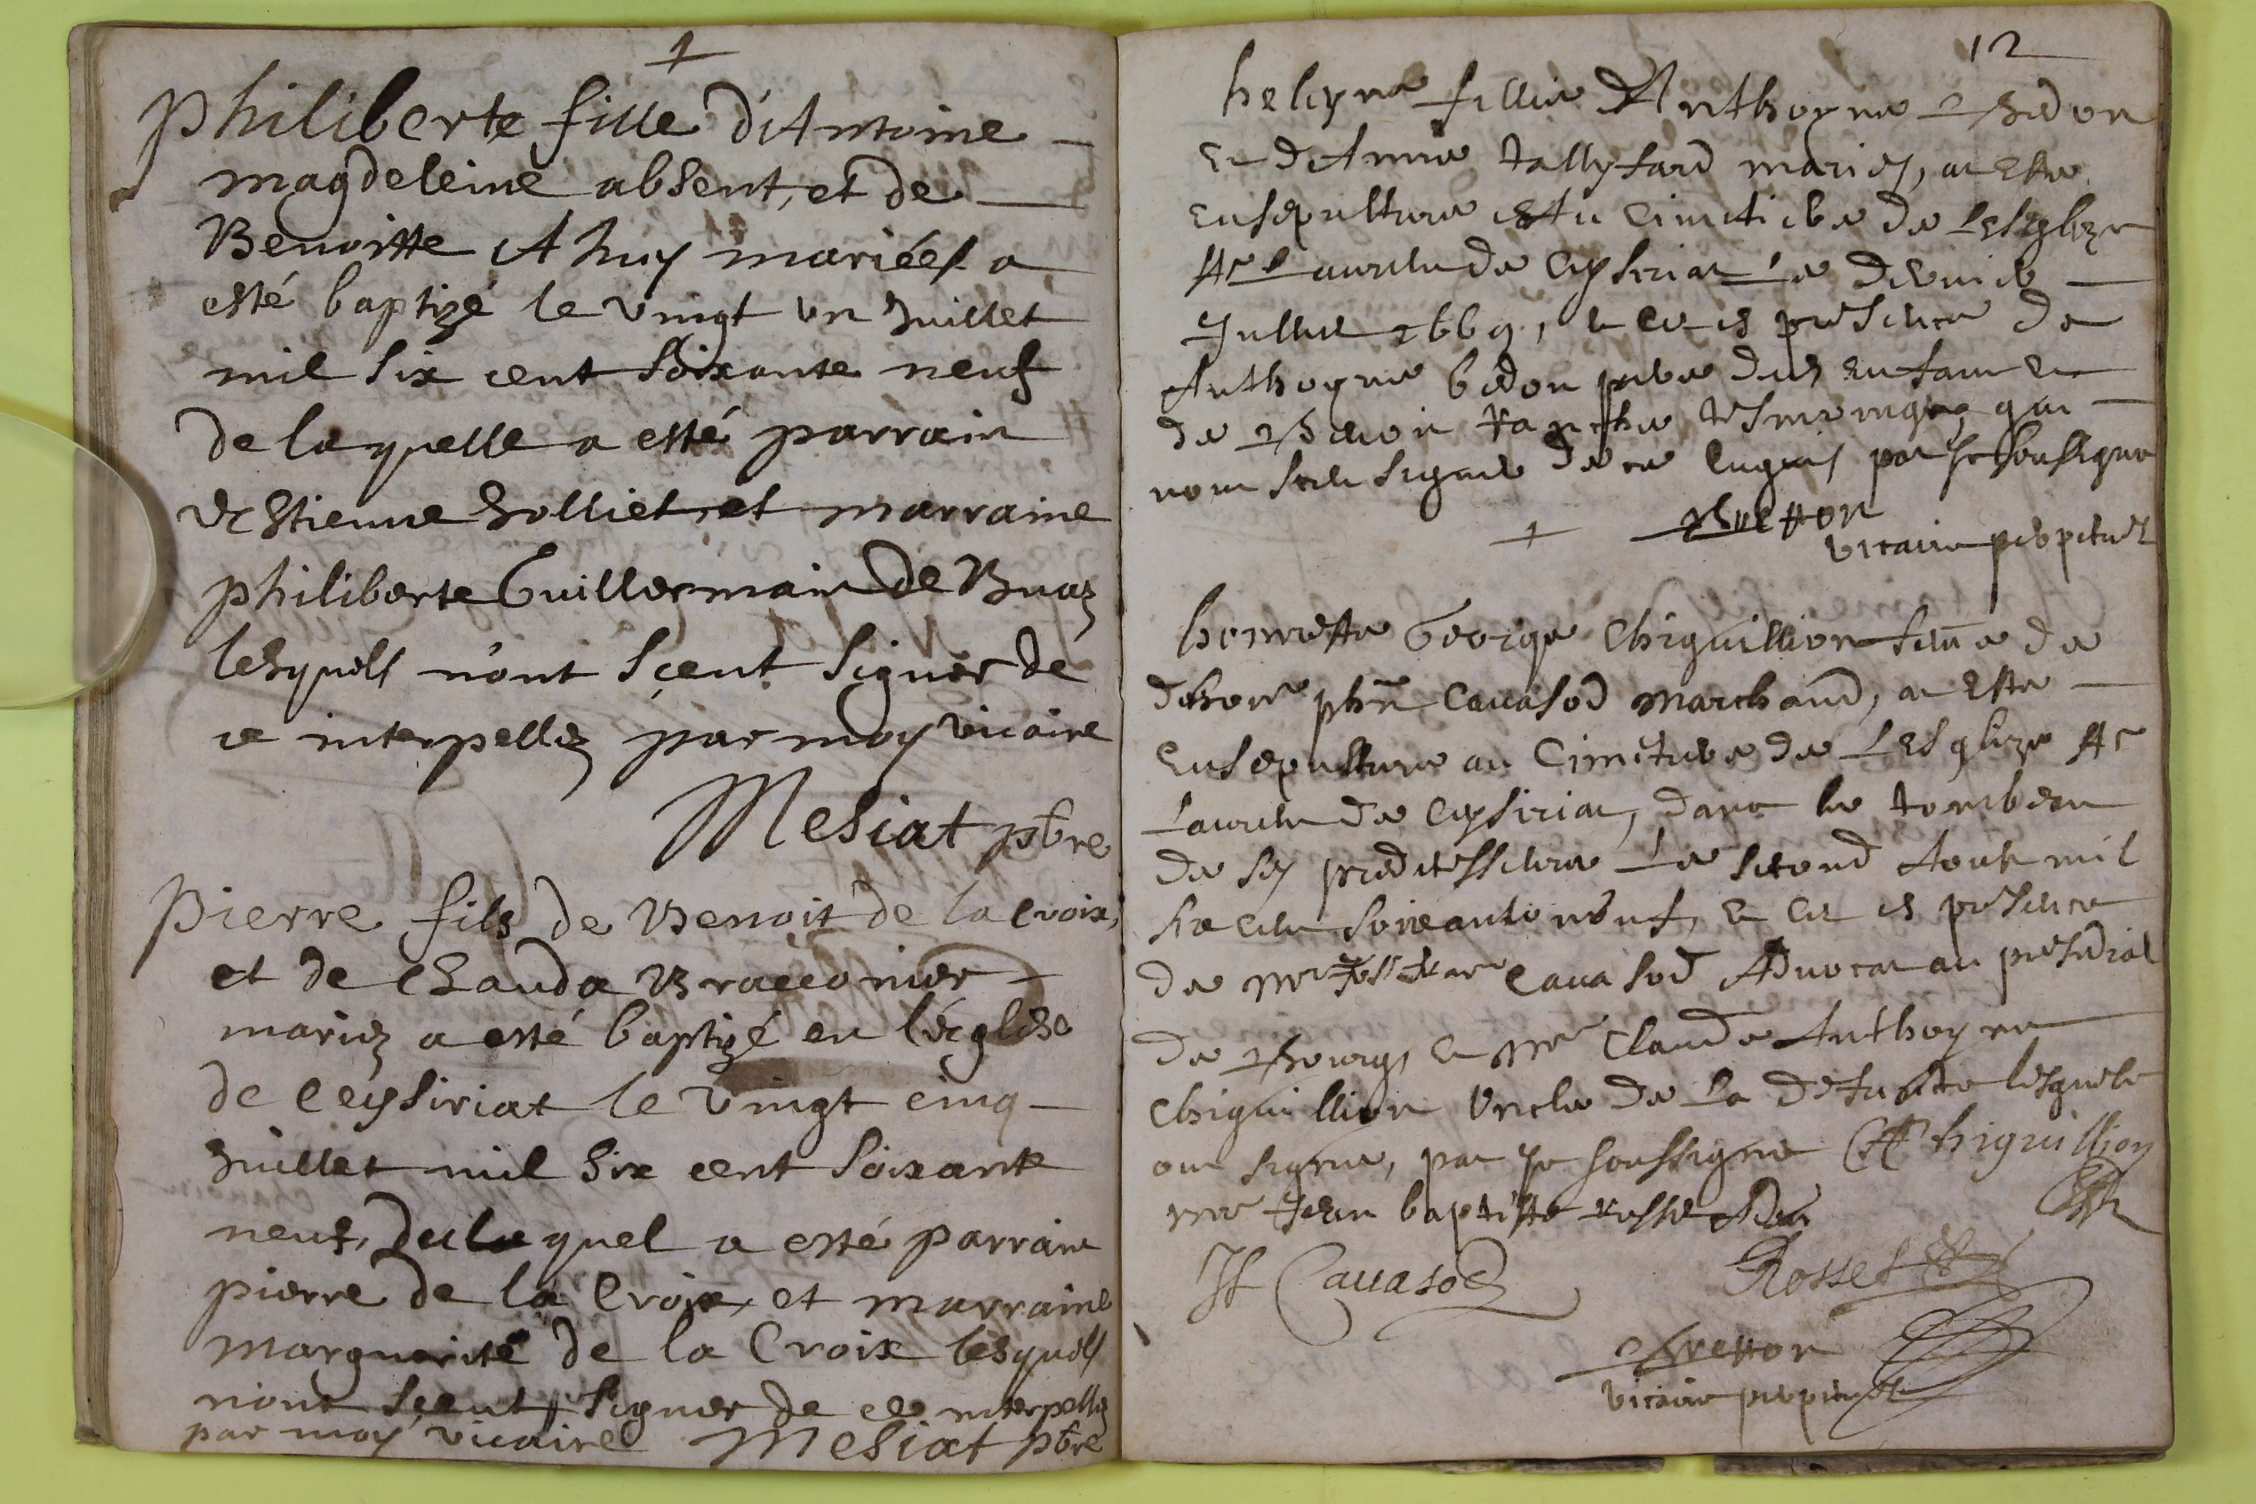 +
Philiberte fille d'Antoine
magdeleine absent, et de
Benoitte Ahuy mariées a
esté baptizé le vingt un Juillet
mil six cent soixante neuf
de laquelle a esté parrain
Estienne Jolliet et marraine
philiberte Guillermain de Buaz
lesquels n'ont sçeut signer de
ce interpellez par moy vicaire
Mesiat pbre
Pierre fils de Benoit de la Croix,
et de Clauda Bracconier
mariez a esté baptizé en l'églize
de Ceysiriat le vingt cinq
Juillet mil six cent soixante
neuf, dulaquel a esté parrain
pierre de la Croix et marraine
marguerite de la Croix lesquels
n'ont sçeut signer de ce interpellez
par moy vicaire Mesiat pbre
12
helyne fillie d'Anthoyne Bedon
et d'Anne mariez, at esté
ensepulture au Cimetiere de L'esglize
St Laurent de Ceysiriat Le dernier
Juillet 1669, et ce en presence de
Anthoyne bedon pere dud enfant et
de Benoit tesmoings qui
n'ont sceu signer de ce enquis par je soubsigne
Bretton
vicaire perpetuel
+
henriette George Chiguillion feme de
d'hon^re Cavasod marchand, at esté
ensepulture au Cimetiere de L'esglize St
Laurent de Ceysiriat, dans le tombeau
de ses predecesseurs Le second Aoust mil
six cent soixante neuf, et ce en presence
de M^r Cavasod Advocat au presidial
de Bourg, et M^r Claude Anthoyne
Chiguillion Uncle de La defuncte lesquels
ont signe, par je soussigne CA Chiguillion
M^r Jean baptiste Rosset
Cavasod
Rosset
Bretton
vicaire perpetuel